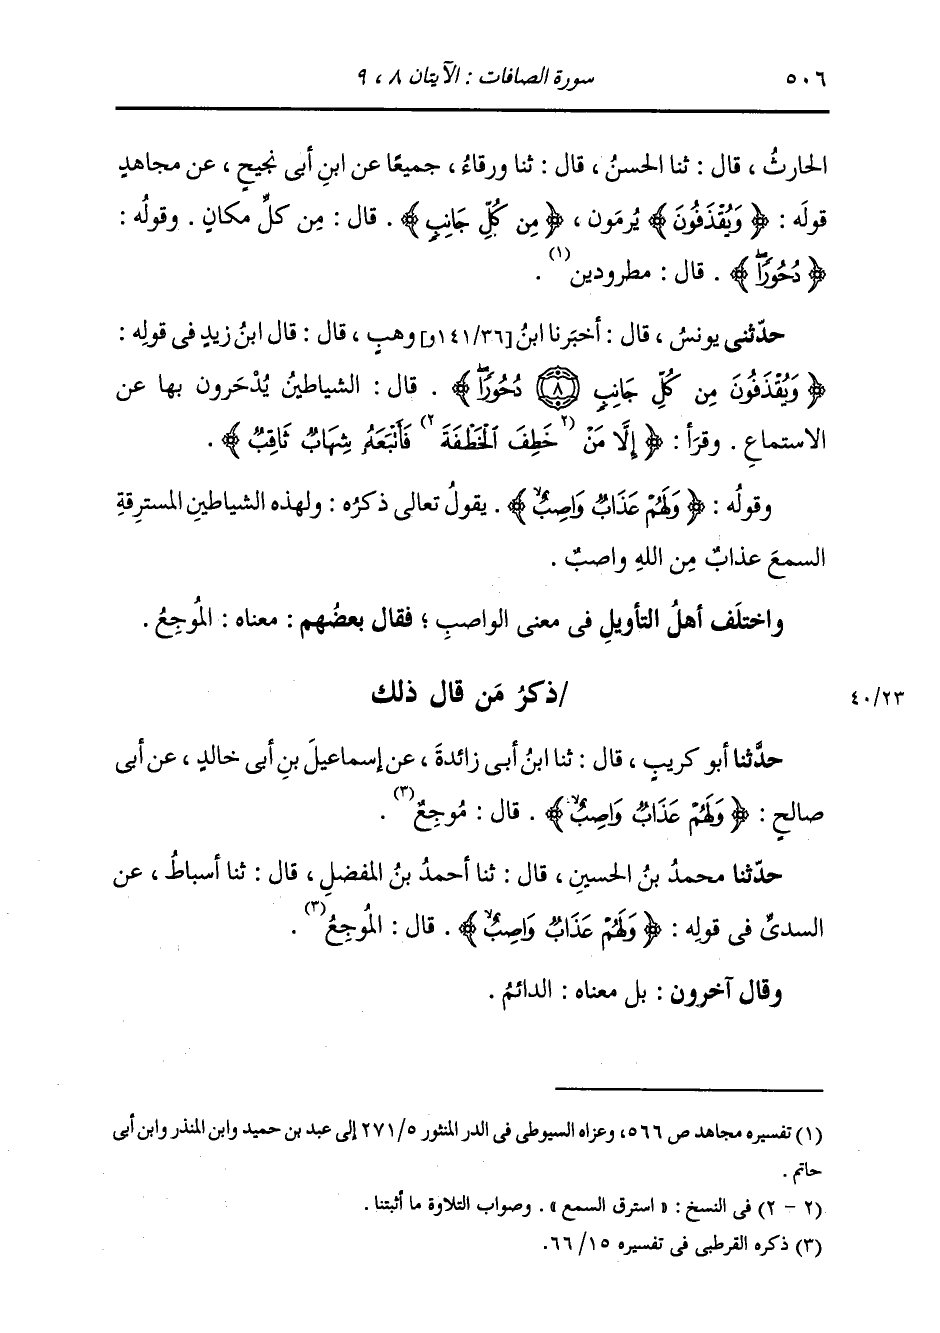 ٥٠٦ سورة الصافات : الآيتان ٨ ، ٩
الحارثُ ، قال : ثنا الحسنُ ، قال : ثنا ورقاءُ ، جميعًا عن ابنِ أبى نَجيحٍ ، عن مجاهدٍ
قولَه : ﴿ وَيُقْذَفُونَ ﴾ يُرمَون ، ﴿ مِن كُلِّ جَانِبٍ ﴾ . قال : مِن كلِّ مكانٍ . وقولُه :
﴿ دُحُورًاۖ ﴾ . قال : مطرودين(١) .
حدّثنى يونسُ ، قال : أخبَرنا ابنُ [١٤١/٣٦و] وهبٍ ، قال : قال ابنُ زيدٍ فى قولِه :
﴿ وَيُقْذَفُونَ مِن كُلِّ جَانِبٍ ۝٨ دُحُورًاۖ ﴾ . قال : الشياطينُ يُدْحَرون بها عن
الاستماعِ . وقرَأ : ﴿ إِلَّا مَنْ (٢خَطِفَ الْخَطْفَةَ٢) فَأَتْبَعَهُ شِهَابٌ ثَاقِبٌ ﴾ .
وقولُه : ﴿ وَلَهُمْ عَذَابٌ وَاصِبٌ ﴾ . يقولُ تعالى ذكرُه : ولهذه الشياطينِ المسترِقةِ
السمعَ عذابٌ مِن اللهِ واصبٌ .
واختلَف أهلُ التأويلِ فى معنى الواصبِ ؛ فقال بعضُهم : معناه : المُوجِعُ .
٤٠/٢٣ /ذكرُ مَن قال ذلك
حدَّثنا أبو كريبٍ ، قال : ثنا ابنُ أبى زائدةَ ، عن إسماعيلَ بنِ أبى خالدٍ ، عن أبى
صالحٍ : ﴿ وَلَهُمْ عَذَابٌ وَاصِبٌ ﴾ . قال : مُوجِعٌ(٣) .
حدّثنا محمدُ بنُ الحسينِ ، قال : ثنا أحمدُ بنُ المفضلِ ، قال : ثنا أسباطُ ، عن
السدىِّ فى قولِه : ﴿ وَلَهُمْ عَذَابٌ وَاصِبٌ ﴾ . قال : المُوجِعُ(٣) .
وقال آخرون : بل معناه : الدائمُ .
(١) تفسيره مجاهد ص ٥٦٦، وعزاه السيوطى فى الدر المنثور ٢٧١/٥ إلى عبد بن حميد وابن المنذر وابن أبى
حاتم .
(٢ - ٢) فى النسخ : « استرق السمع » . وصواب التلاوة ما أثبتنا .
(٣) ذكره القرطبى فى تفسيره ٦٦/١٥.